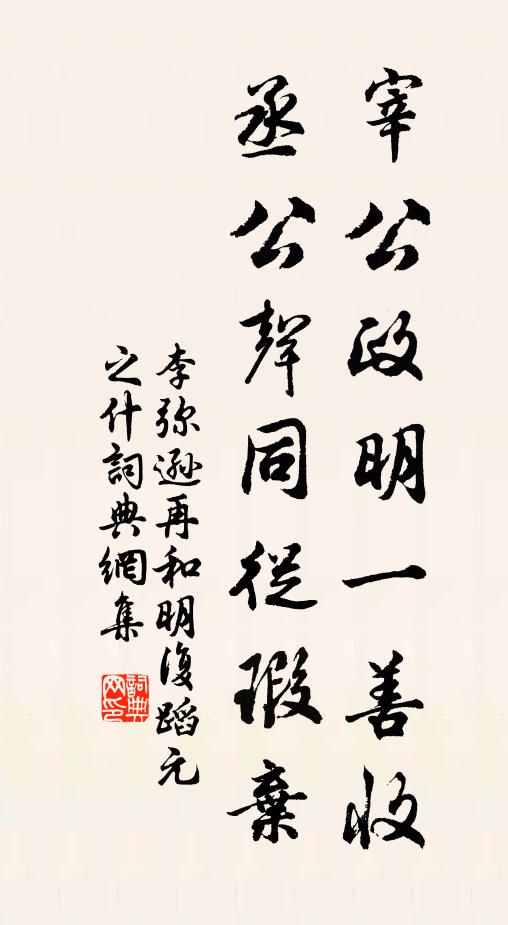 宰公政明一善收
丞公聲同從瑕棄
李弥遜再和明復蹈元
之什詞典網集
詞典网印